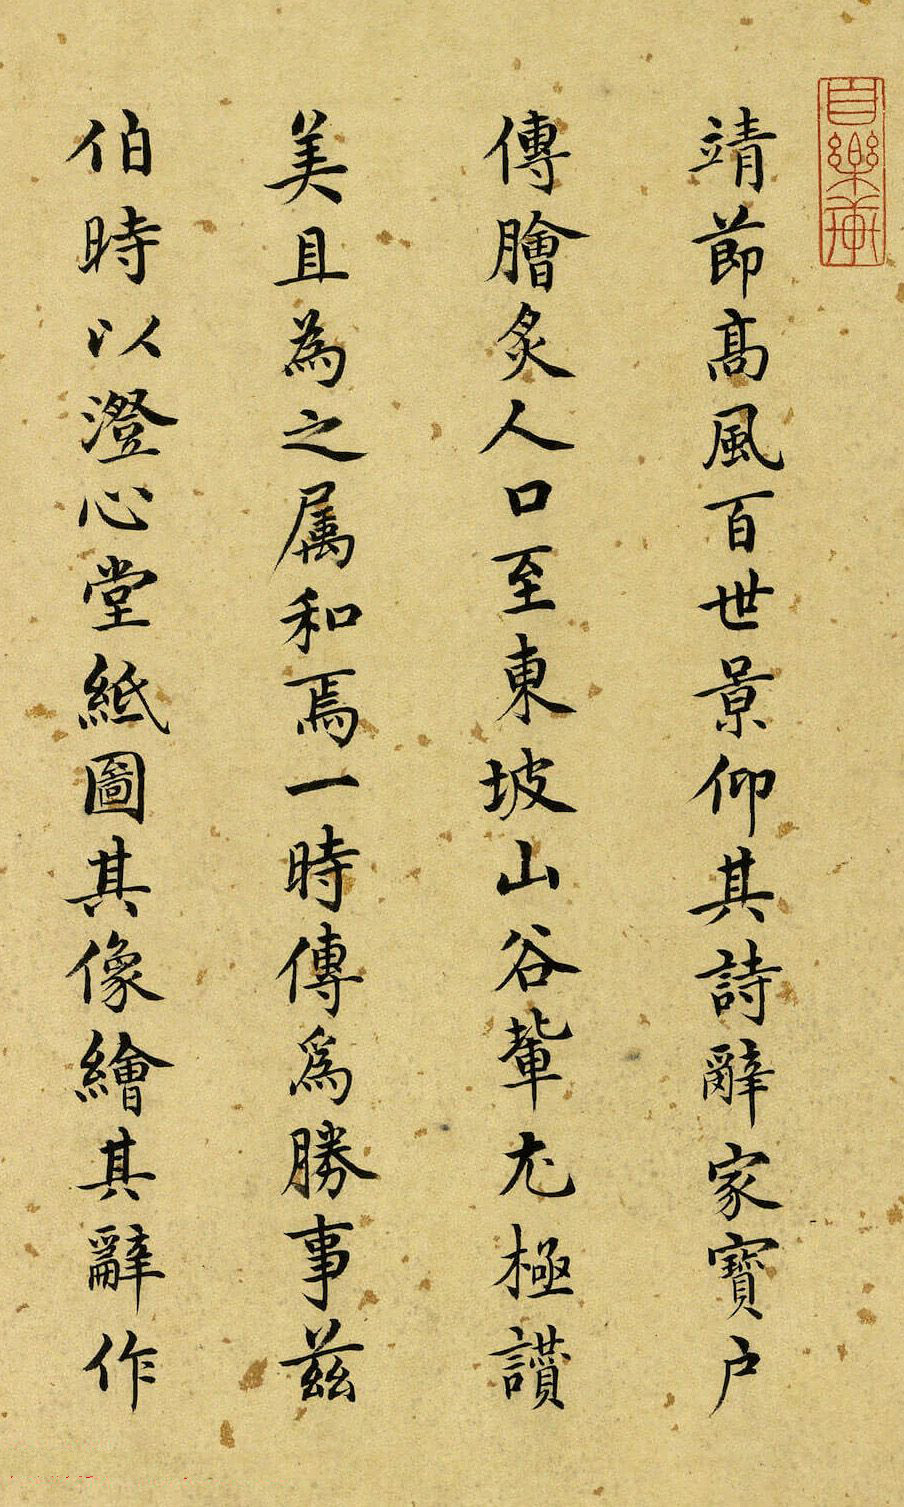 靖節高風百世景仰其詩辭家寶户
傳膾炙人口至東坡山谷輩尤極讚
美且為之属和焉一時傳為勝事茲
伯時以澄心堂紙圖其像繪其辭作